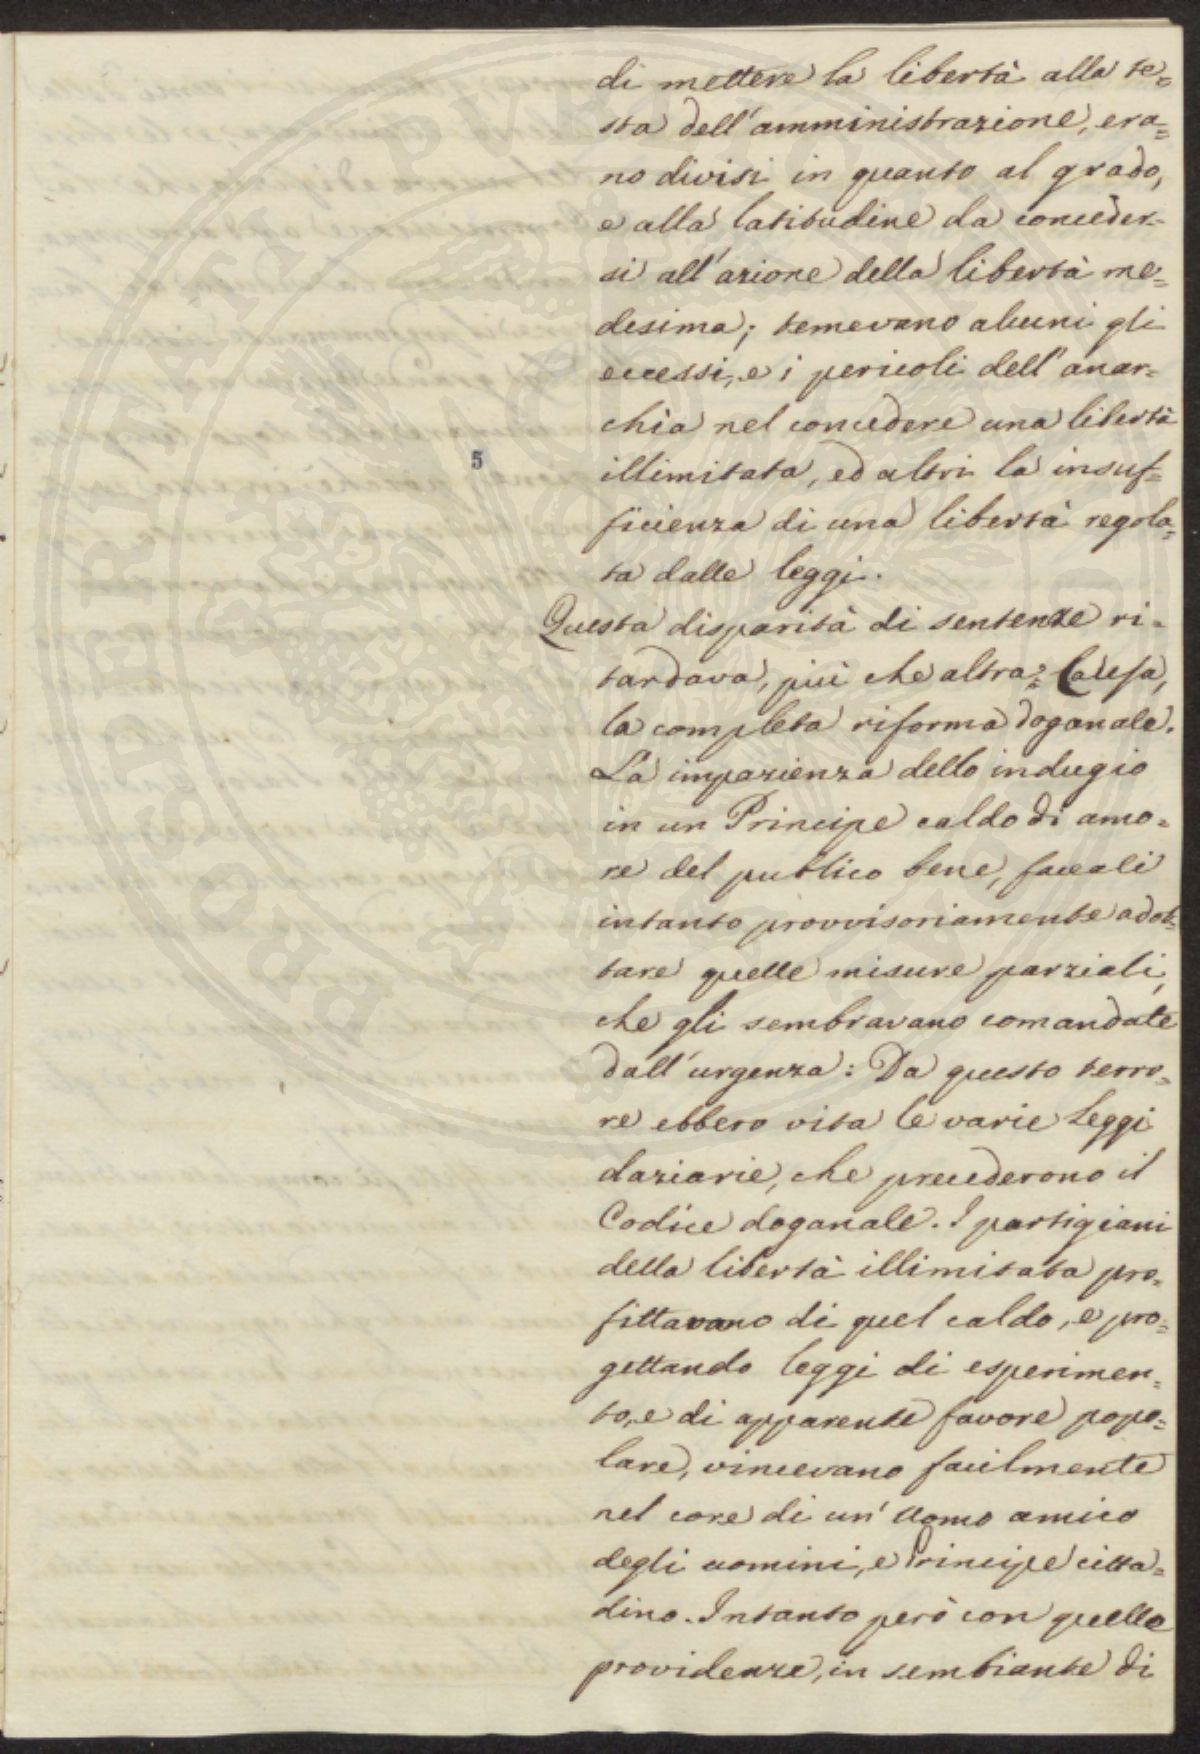 di mettere la libertà alla te=
sta dell'amministrazione, era=
no divisi in quanto al grado,
e alla latitudine da conceder=
si all'azione della libertà me=
desima; temevano alcuni gli
eccessi, e i pericoli dell'anar=
chia nel concedere una libertà
illimitata, ed altri la insuf=
ficienza di una libertà regola=
ta dalle leggi.
5
Questa disparità di sentenze ri=
tardava, più che altra causa,
la completa riforma doganale.
La impazienza dello indugio
in un Principe caldo di amo=
re del publico bene, faceali
intanto provvisoriamente adot=
tare quelle misure parziali,
che gli sembravano comandate
dall'urgenza: Da questo terro=
re ebbero vita le varie Leggi
daziarie, che precederono il
Codice doganale. I partigiani
della libertà illimitata pro=
fittavano di quel caldo, e pro=
gettando leggi di esperimen=
to, e di apparente favore popo=
lare, vincevano facilmente
nel core di un' Uomo amico
degli uomini, e Principe citta=
dino. Intanto però con quelle
providenze, in sembiante di
PROSPERITATI PUBLICAE